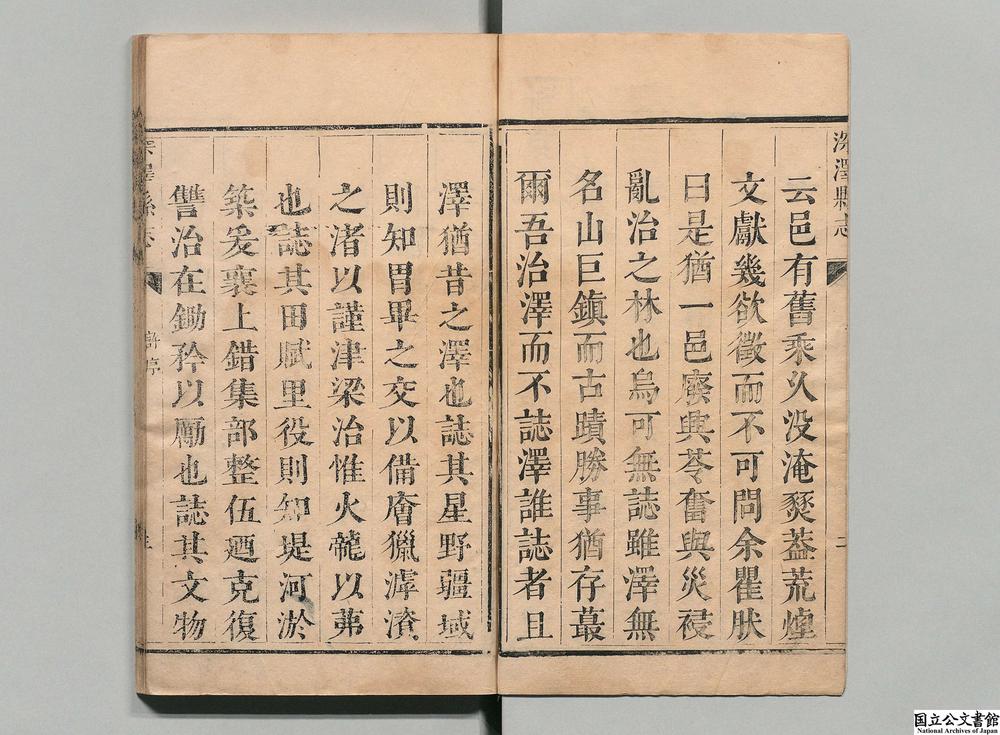 深澤縣志
云邑有舊乘久没淹燹葢荒煌
文獻幾欲徵而不可問余瞿肰
曰是猶一邑廢興苓奮與災祲
亂治之林也烏可無誌雖澤無
名山巨鎮而古蹟勝事猶存蕞
爾吾治澤而不誌澤誰誌者且
澤猶昔之澤也誌其星野疆域
則知胃畢之交以備
之渚以謹津梁治惟火
也誌其田賦里役則知堤河淤
築爰襄上錯集部整伍廼克復
讐治在鋤矜以勵也誌其文物
國立公文書館
National Archives of Japan